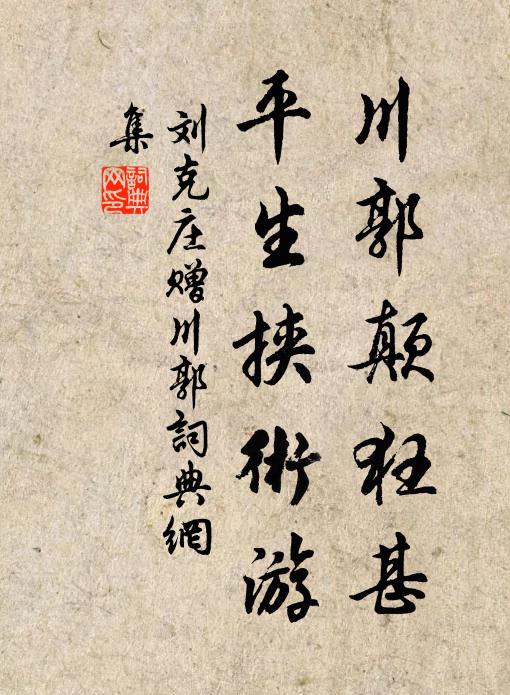 川郭颠狂甚
平生挟術游
刘克庄赠川郭詞典網
集
詞典
网印